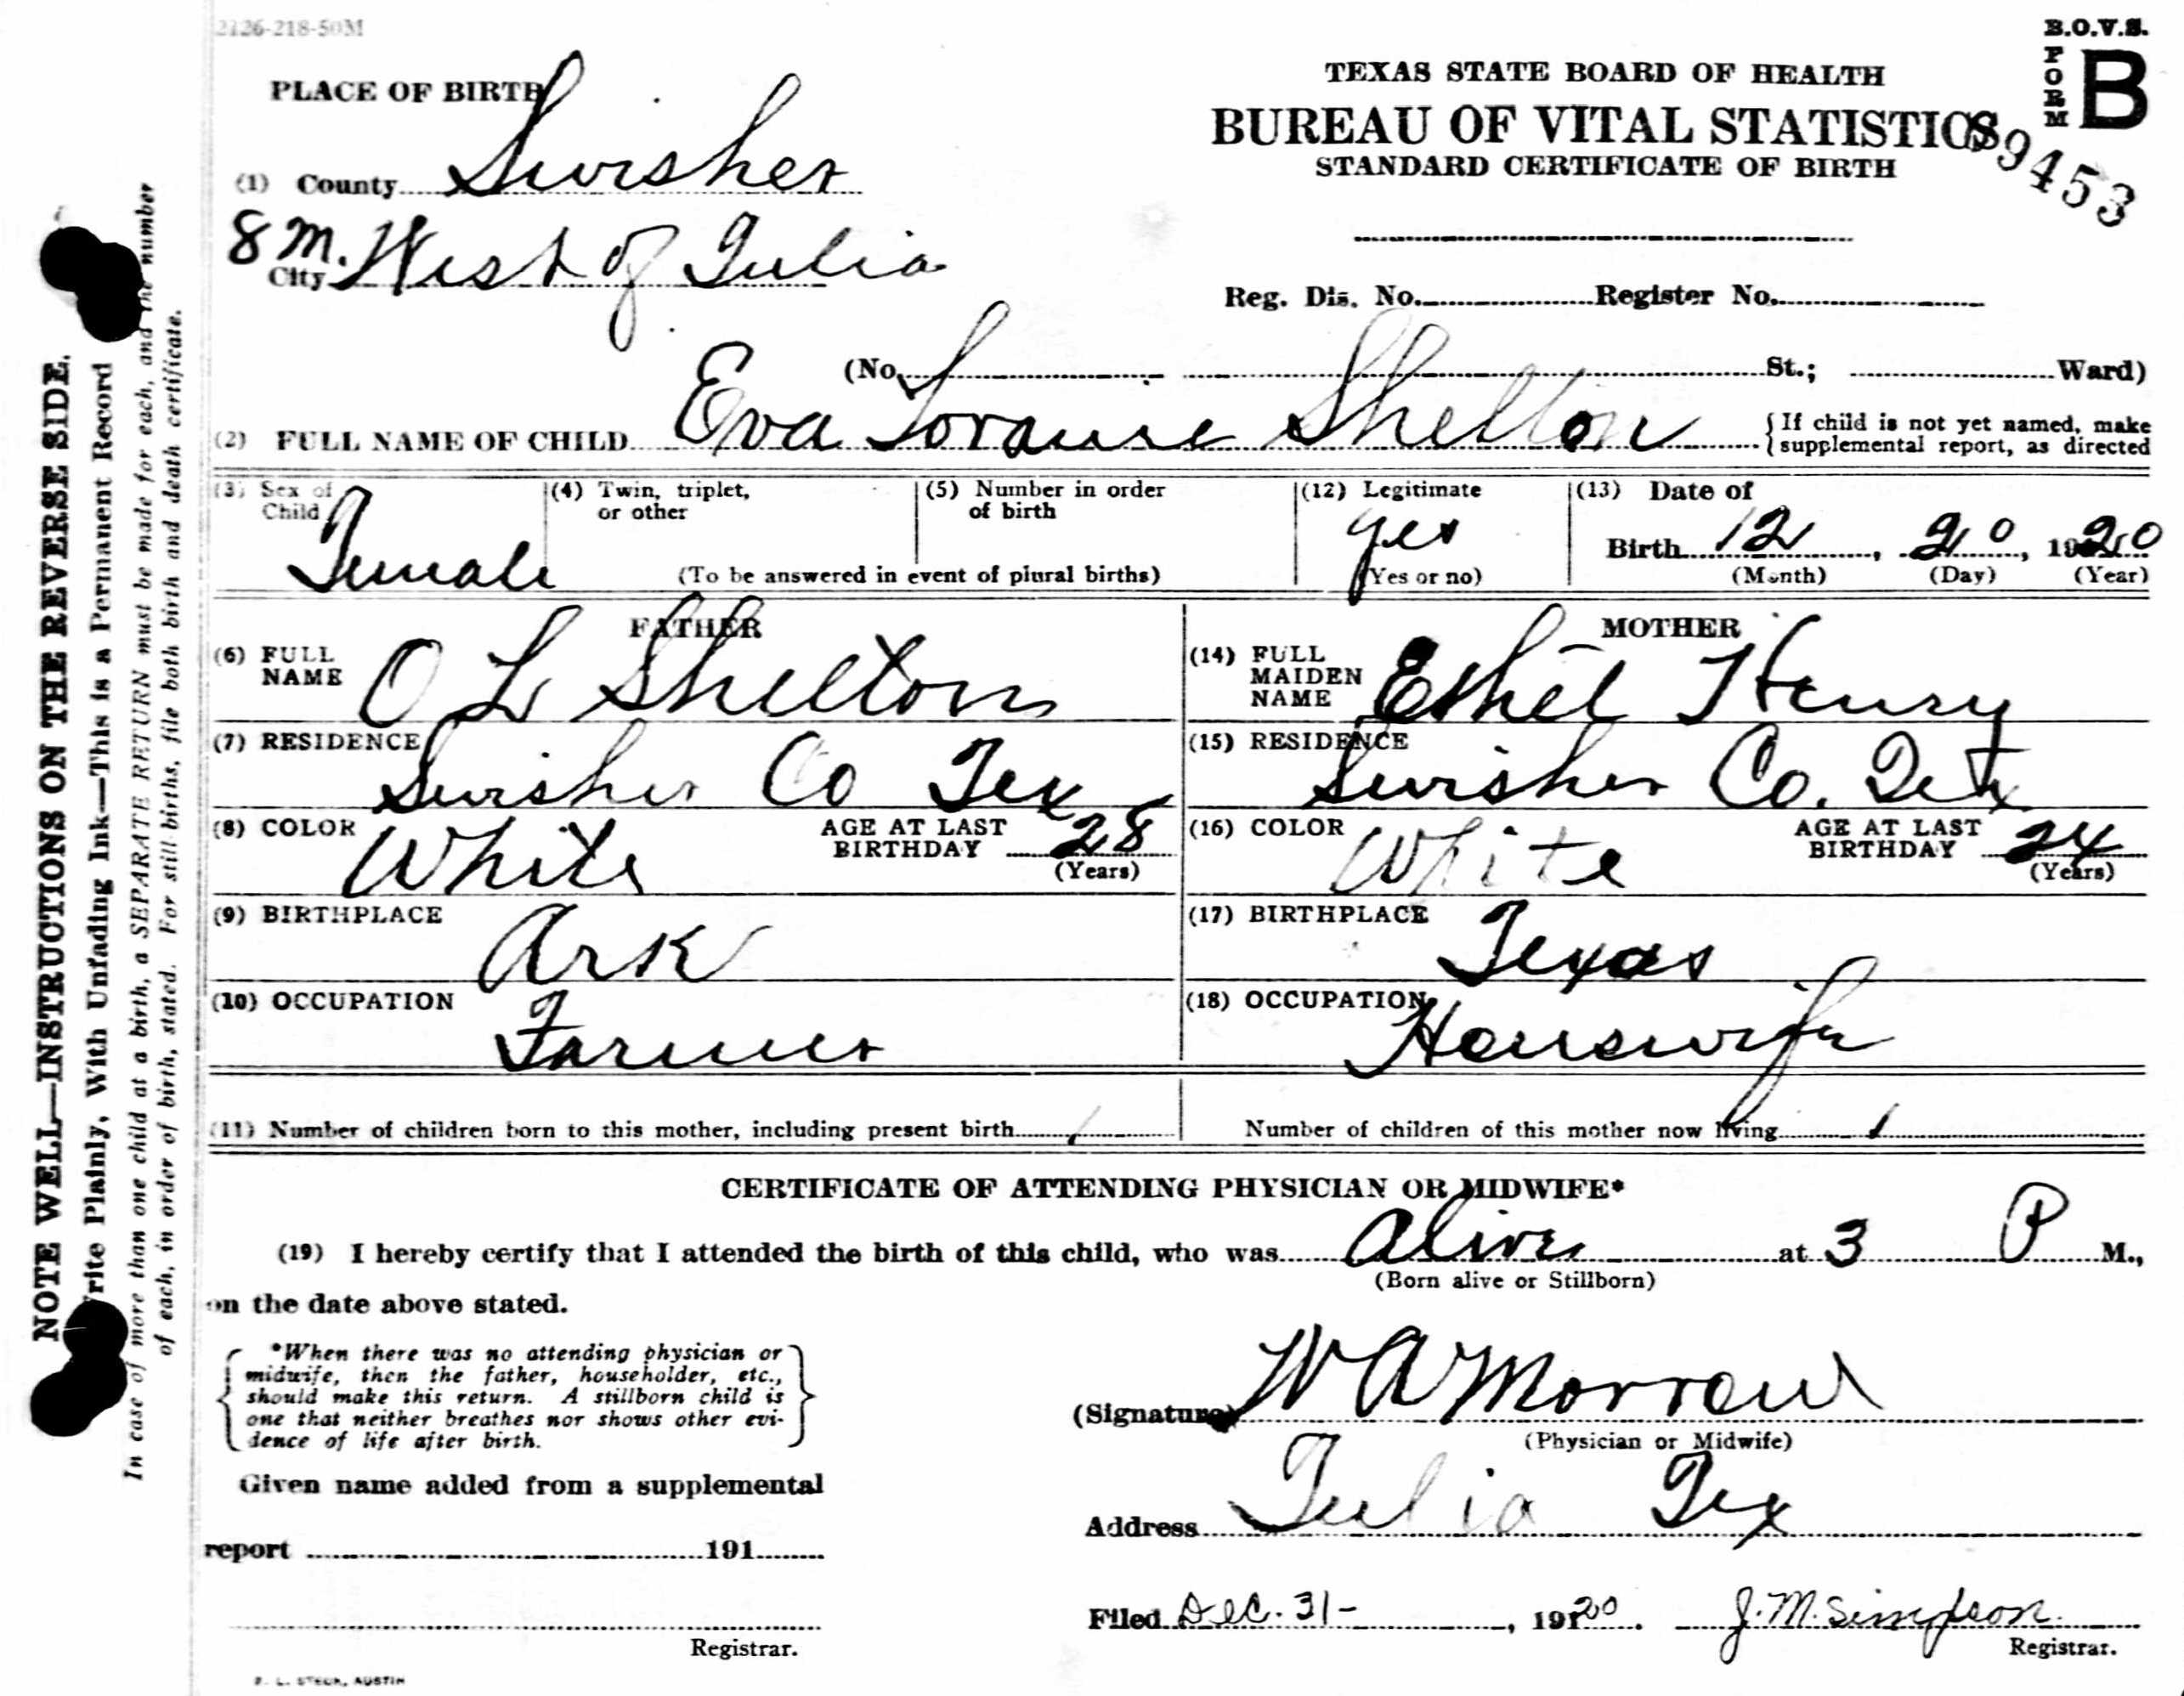 2126-218-50M
B.O.V.S.
FORM B
PLACE OF BIRTH
TEXAS STATE BOARD OF HEALTH
BUREAU OF VITAL STATISTICS
STANDARD CERTIFICATE OF BIRTH
89453
(1) County Swisher
8 M. West of Tulia
City
Reg. Dis. No. Register No.
(No. St.; Ward)
(2) FULL NAME OF CHILD Eva Loraine Shelton
{If child is not yet named, make
{supplemental report, as directed
(3) Sex of Child Female
(4) Twin, triplet, or other
(5) Number in order of birth
(To be answered in event of plural births)
(12) Legitimate yes
(Yes or no)
(13) Date of
Birth 12, 20, 1920
(Month) (Day) (Year)
FATHER
(6) FULL NAME O L Shelton
(7) RESIDENCE Swisher Co Tex
(8) COLOR White AGE AT LAST BIRTHDAY 28
(Years)
(9) BIRTHPLACE Ark
(10) OCCUPATION Farmer
MOTHER
(14) FULL MAIDEN NAME Ethel Henry
(15) RESIDENCE Swisher Co. Tex
(16) COLOR White AGE AT LAST BIRTHDAY 24
(Years)
(17) BIRTHPLACE Texas
(18) OCCUPATION Housewife
(11) Number of children born to this mother, including present birth 1
Number of children of this mother now living 1
CERTIFICATE OF ATTENDING PHYSICIAN OR MIDWIFE*
(19) I hereby certify that I attended the birth of this child, who was Alive at 3 P M.,
(Born alive or Stillborn)
on the date above stated.
*When there was no attending physician or
midwife, then the father, householder, etc.,
should make this return. A stillborn child is
one that neither breathes nor shows other evi-
dence of life after birth.
(Signature) W A Morrow
(Physician or Midwife)
Given name added from a supplemental
report 191
Address Tulia Tex
Filed Dec. 31- , 1920. J. M. Simpson.
Registrar.
Registrar.
E. L. STECK, AUSTIN
NOTE WELL—INSTRUCTIONS ON THE REVERSE SIDE.
Write Plainly, With Unfading Ink—This is a Permanent Record
In case of more than one child at a birth, a SEPARATE RETURN must be made for each, and the number
of each, in order of birth, stated. For still-births, file both birth and death certificate.